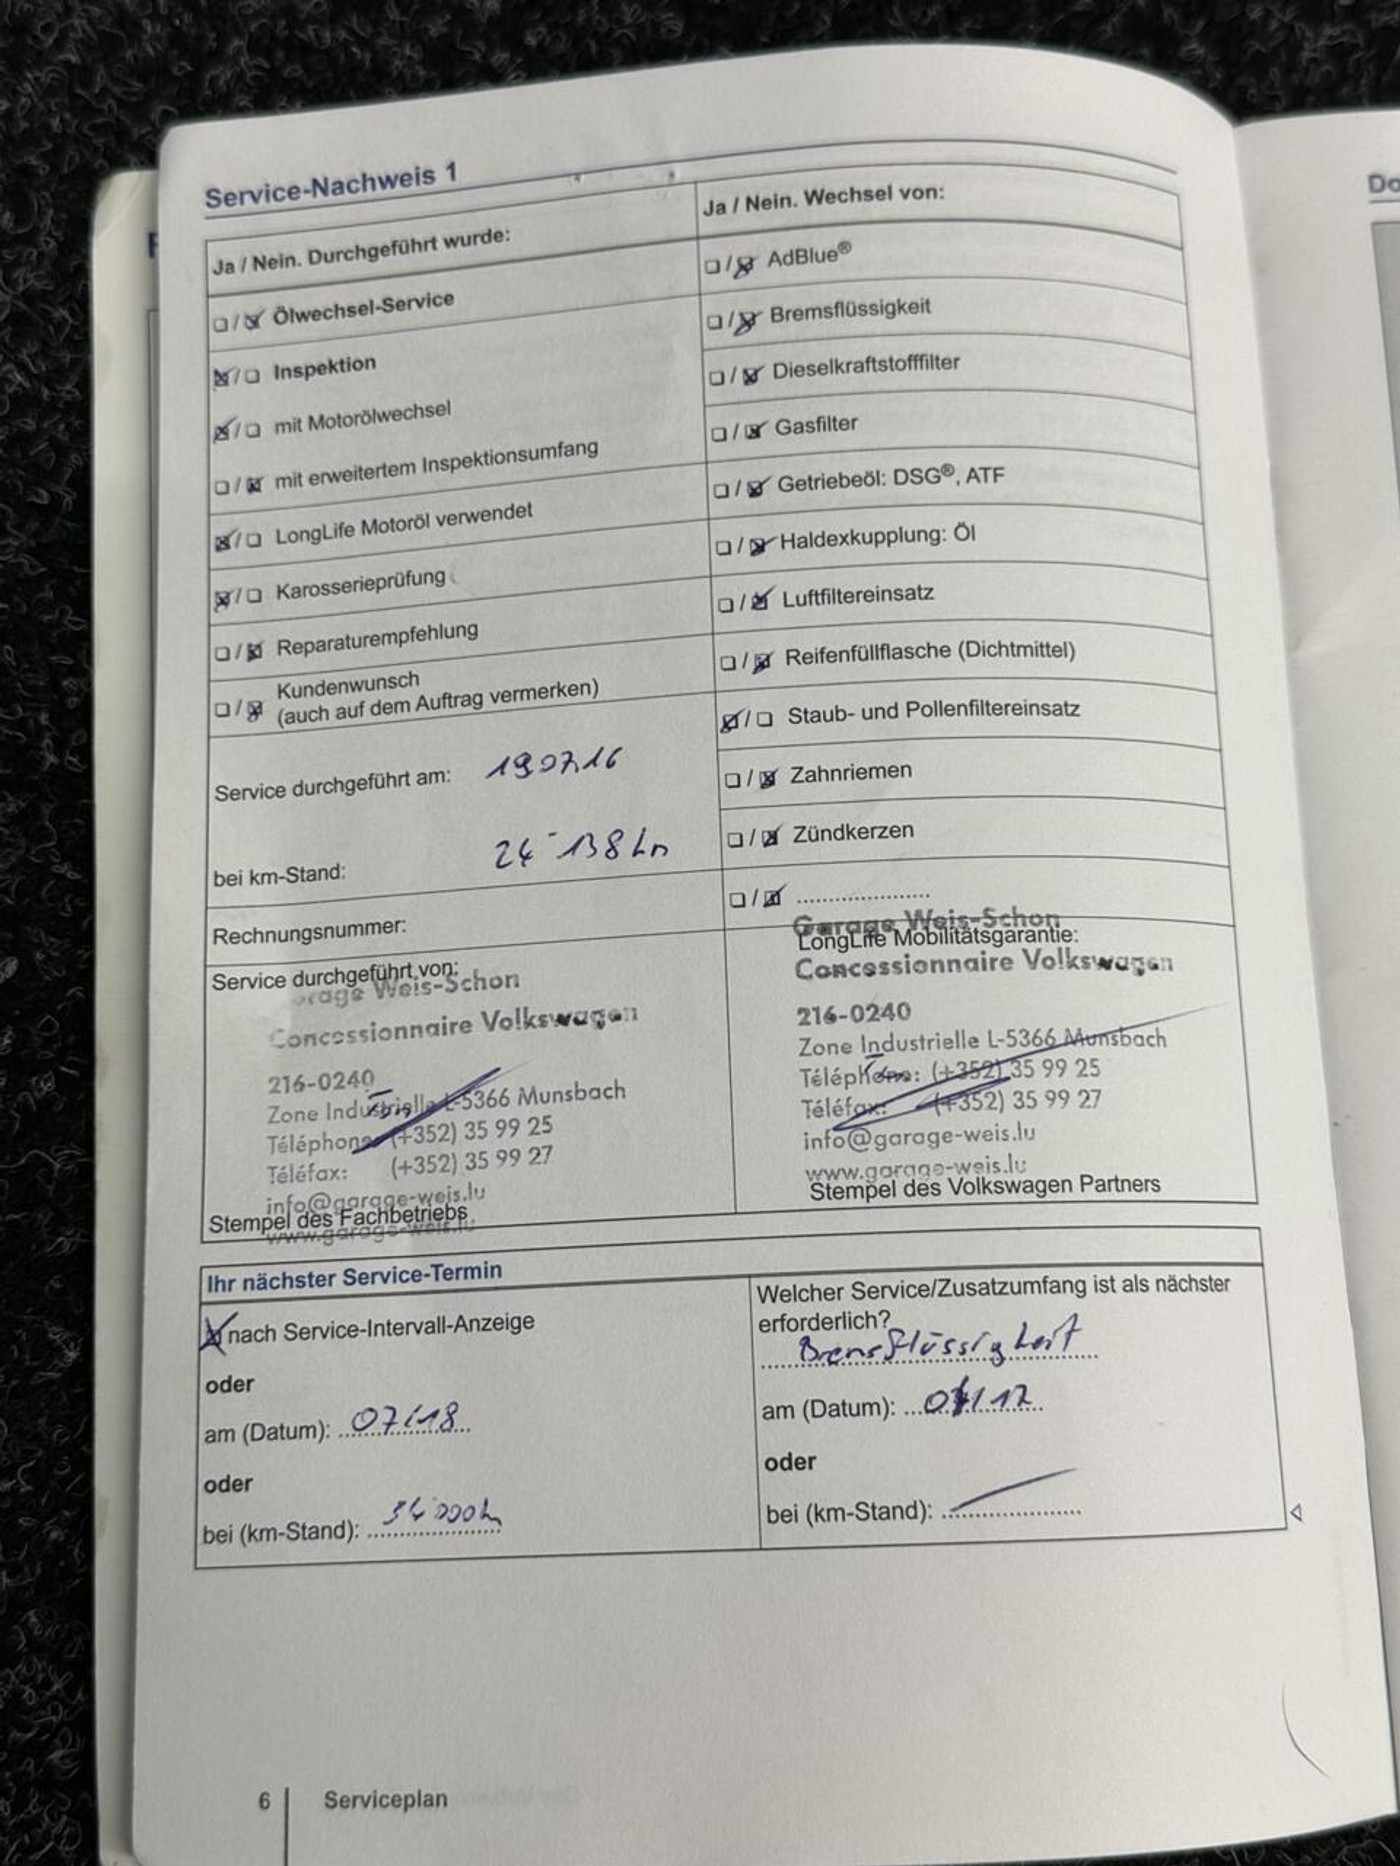 Service-Nachweis 1
Ja / Nein. Durchgeführt wurde:
Ölwechsel-Service
Inspektion
mit Motorölwechsel
mit erweitertem Inspektionsumfang
LongLife Motoröl verwendet
Karosserieprüfung
Reparaturempfehlung
Kundenwunsch
(auch auf dem Auftrag vermerken)
Service durchgeführt am: 19.07.16
bei km-Stand: 24138 km
Rechnungsnummer:
Service durchgeführt von:
Garage Weis-Schon
Concessionnaire Volkswagen
216-0240
Zone Industrielle L-5366 Munsbach
Téléphone: (+352) 35 99 25
Téléfax: (+352) 35 99 27
info@garage-weis.lu
Stempel des Fachbetriebs
www.garage-weis.lu
Ja / Nein. Wechsel von:
AdBlue®
Bremsflüssigkeit
Dieselkraftstofffilter
Gasfilter
Getriebeöl: DSG®, ATF
Haldexkupplung: Öl
Luftfiltereinsatz
Reifenfüllflasche (Dichtmittel)
Staub- und Pollenfiltereinsatz
Zahnriemen
Zündkerzen
....................
Garage Weis-Schon
LongLife Mobilitätsgarantie:
Concessionnaire Volkswagen
216-0240
Zone Industrielle L-5366 Munsbach
Téléphone: (+352) 35 99 25
Téléfax: (+352) 35 99 27
info@garage-weis.lu
www.garage-weis.lu
Stempel des Volkswagen Partners
Ihr nächster Service-Termin
nach Service-Intervall-Anzeige
oder
am (Datum): 07/18
oder
bei (km-Stand):
Welcher Service/Zusatzumfang ist als nächster
erforderlich?
Bremsflüssigkeit
am (Datum):
oder
bei (km-Stand):
6 Serviceplan
Do